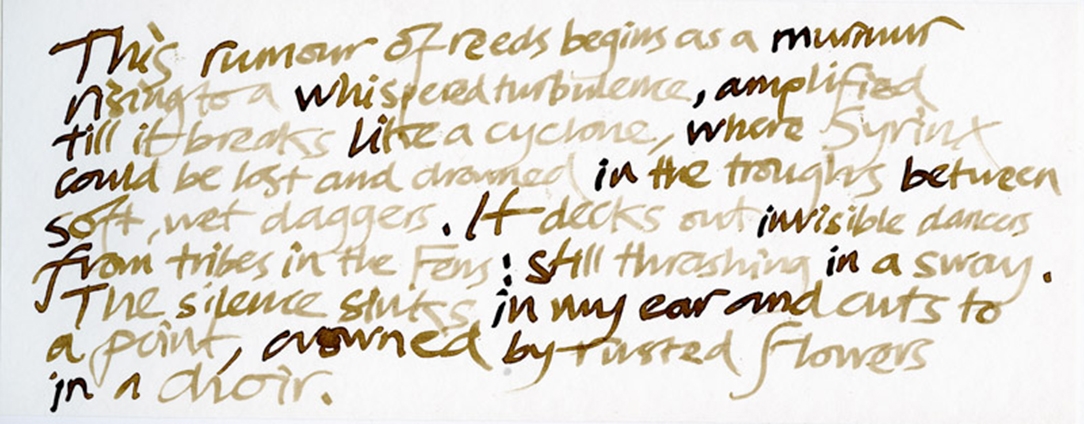 This rumour of reeds begins as a murmur
rising to a whispered turbulence, amplified
till it breaks like a cyclone, where Syrinx
could be lost and drowned in the troughs between
soft, wet daggers. It decks out invisible dancers
from tribes in the Fens: still thrashing in a sway.
The silence slinks in my ear and cuts to
a point, crowned by rusted flowers
in a choir.